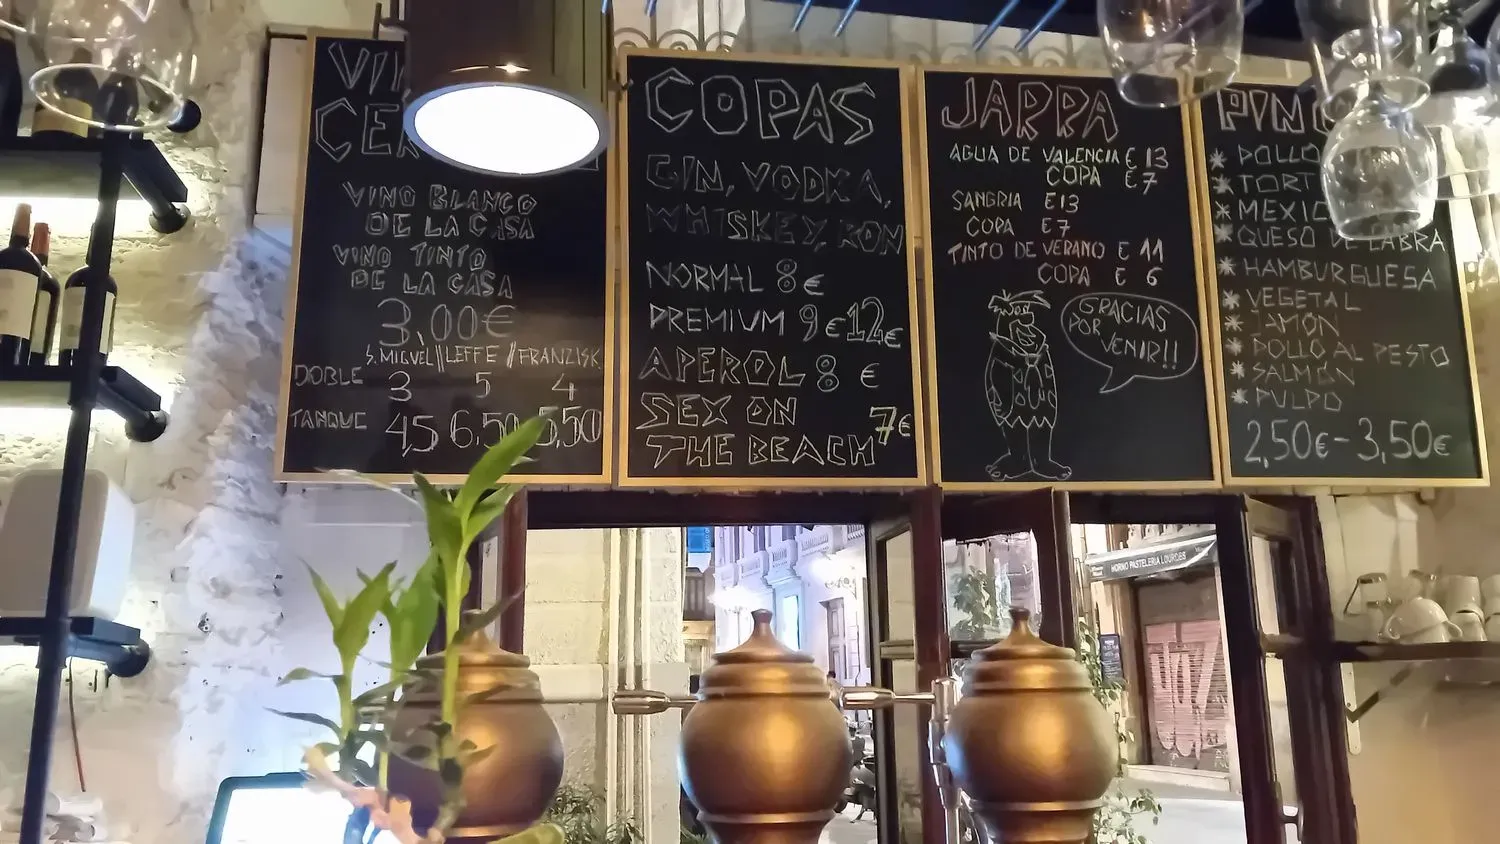 COPAS
GIN, VODKA,
WHISKEY, RON
NORMAL 8€
PREMIUM 9€ 12€
APEROL 8 €
SEX ON
THE BEACH 7€
VINO BLANCO
DE LA CASA
VINO TINTO
DE LA CASA
3,00€
S. MIGUEL // LEFFE // FRANZISK
DOBLE 3 5 4
TANQUE 4,5 6,50 5,50
JARRA
AGUA DE VALENCIA € 13
COPA € 7
SANGRIA € 13
COPA € 7
TINTO DE VERANO € 11
COPA € 6
GRACIAS
POR
VENIR!!
* POLLO
* TORT
* MEXIC
* QUESO DE CABRA
* HAMBURGUESA
* VEGETAL
* JAMÓN
* POLLO AL PESTO
* SALMÓN
* PULPO
2,50€ - 3,50€
HORNO PASTELERIA LOURDES